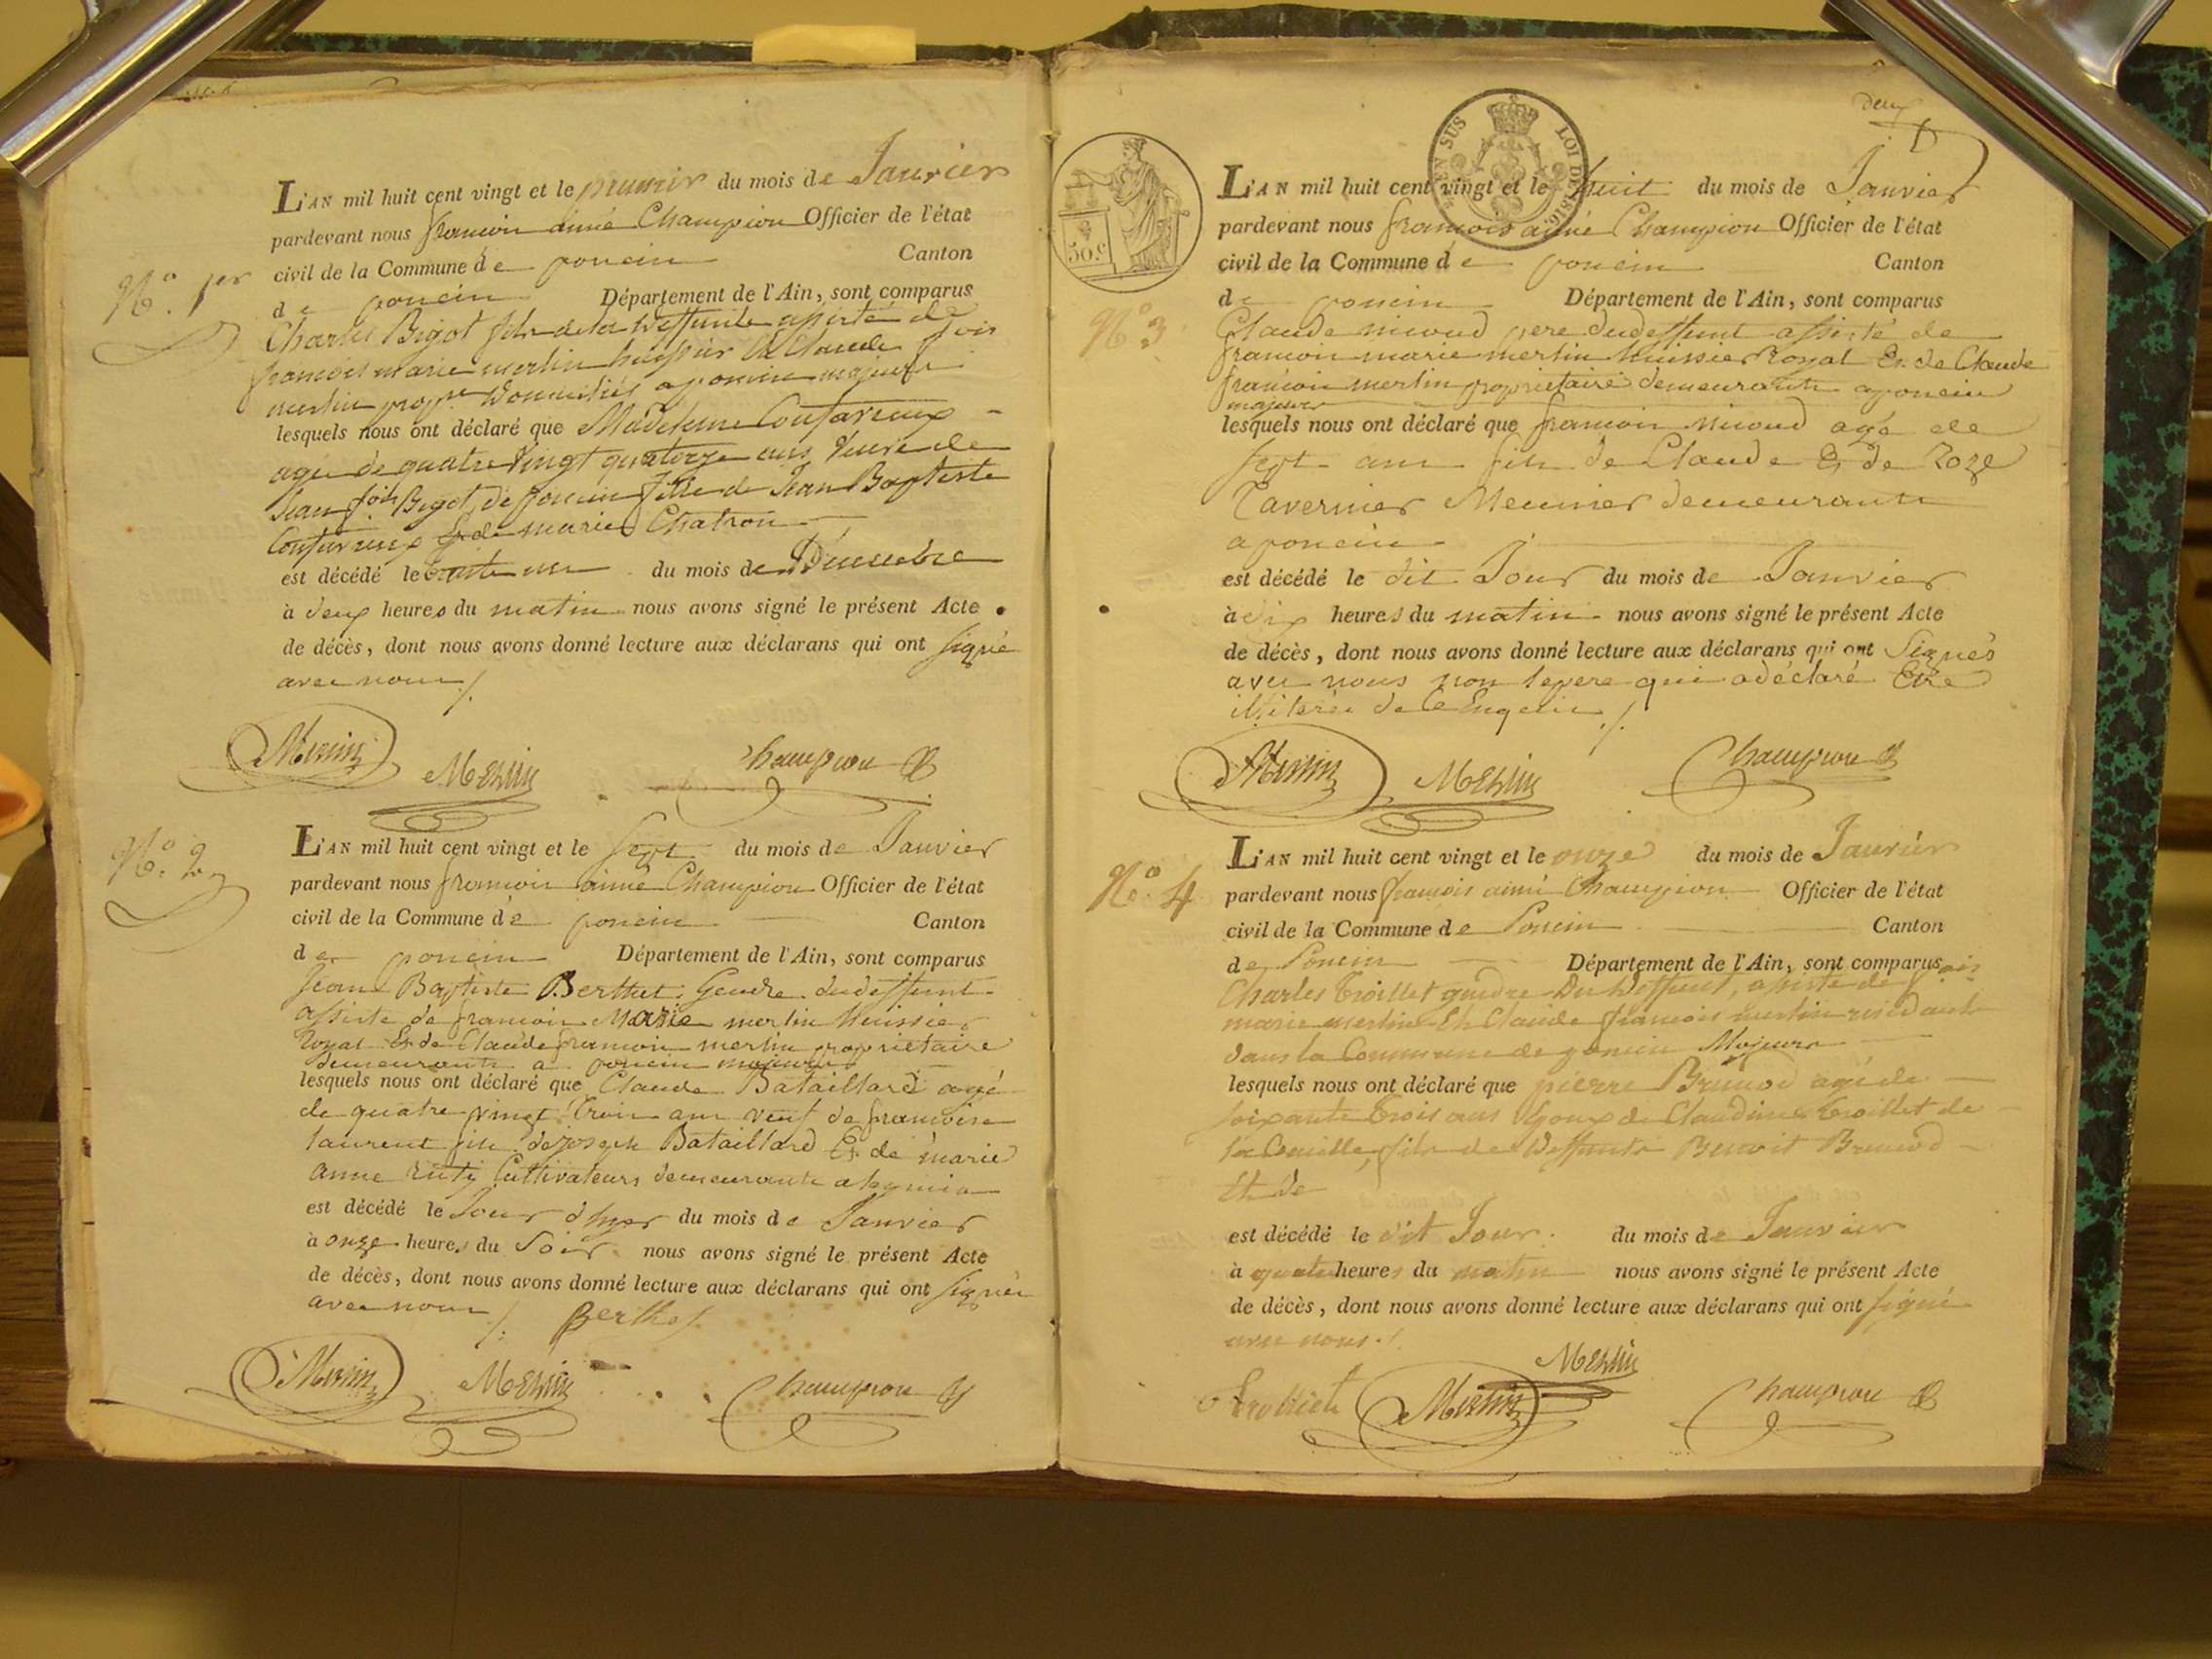 N.º 1er
L'AN mil huit cent vingt et le premier du mois de Janvier
pardevant nous françois aimé Champion Officier de l'état
civil de la Commune de poncin Canton
de poncin Département de l'Ain, sont comparus
Charles Bigot fils de la deffunte assisté de
françois marie merlin huissier et Claude fois
merlin propre domiciliés a poncin majeurs
lesquels nous ont déclaré que Madeleine Contavreux
agée de quatre vingt quatorze ans veuve de
Jean fois Bigot, de poncin fille de Jean Baptiste
Contavreux et de marie Chatron
est décédé le trente un du mois de Décembre
à deux heures du matin nous avons signé le présent Acte
de décès, dont nous avons donné lecture aux déclarans qui ont signé
avec nous ./.
Merlin Merlin Champion
N.º 2
L'AN mil huit cent vingt et le sept du mois de Janvier
pardevant nous françois aimé Champion Officier de l'état
civil de la Commune de poncin Canton
de poncin Département de l'Ain, sont comparus
Jean Baptiste Berthet Gendre du deffunt
assisté de françois Marie merlin huissier
Royal Et de Claude françois merlin propriétaire
demeurants a poncin majeurs
lesquels nous ont déclaré que Claude Bataillard agé
de quatre vingt trois ans veuf de françoise
laurent fils de joseph Bataillard Et de marie
anne Cultivateurs demeurants a
est décédé le Jour d'hyer du mois de Janvier
à onze heures du Soir nous avons signé le présent Acte
de décès, dont nous avons donné lecture aux déclarans qui ont signés
avec nous ./. Berthet
Merlin Merlin Champion
deux
EN SUS LOI DE 1816.
50.c
N.º 3
L'AN mil huit cent vingt et le huit du mois de Janvier
pardevant nous françois aimé Champion Officier de l'état
civil de la Commune de poncin Canton
de poncin Département de l'Ain, sont comparus
Claude nicoud pere du deffunt assisté de
françois marie merlin huissier Royal Et de Claude
françois merlin propriétaire demeurants a poncin
majeurs
lesquels nous ont déclaré que françois nicoud agé de
sept ans fils de Claude Et de Roze
Tavernier Meunier demeurants
a poncin
est décédé le dit Jour du mois de Janvier
à dix heures du matin nous avons signé le présent Acte
de décès, dont nous avons donné lecture aux déclarans qui ont Signés
avec nous non le pere qui a déclaré Etre
illiteré de ce Enquis ./.
Merlin Merlin Champion
N.º 4
L'AN mil huit cent vingt et le onze du mois de Janvier
pardevant nous françois aimé Champion Officier de l'état
civil de la Commune de Poncin Canton
de Poncin Département de l'Ain, sont comparus
Charles trolliet gendre Du deffunt, assisté de fois
marie merlin Et Claude françois merlin residants
dans la Commune de poncin Majeurs
lesquels nous ont déclaré que pierre Brunod agé de
soixante trois ans Epoux de Claudine trolliet de
fils de deffunts Benoit Brunod
Et de
est décédé le dit Jour du mois de Janvier
à quatre heures du matin nous avons signé le présent Acte
de décès, dont nous avons donné lecture aux déclarans qui ont signé
avec nous ./.
Trolliet Merlin Merlin Champion